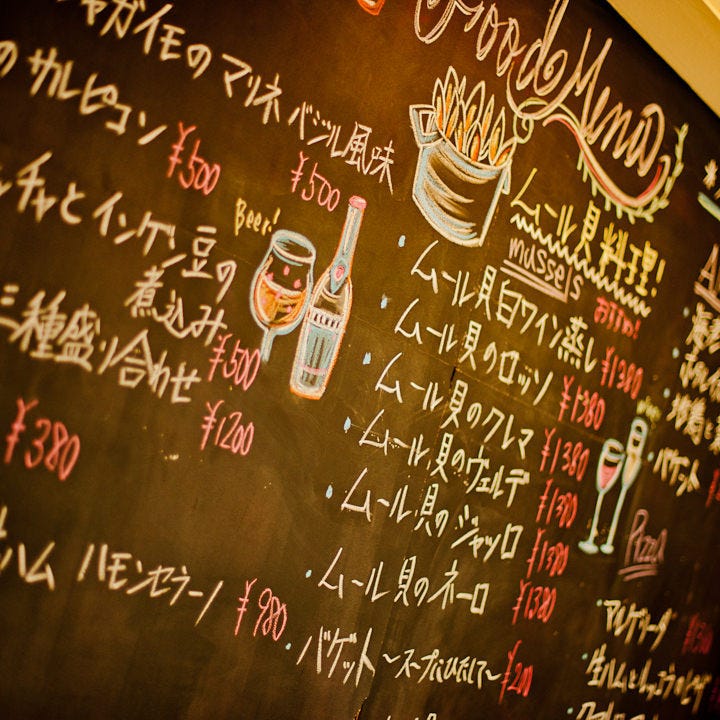 Food Menu
ャガイモのマリネ バジル風味
¥500
のサルピコン
¥500
チャとインゲン豆の
煮込み
¥500
三種盛り合わせ
¥1200
¥380
ハム ハモンセラーノ ¥980
Beer!
ムール貝料理!
mussels
おすすめ!
ムール貝白ワイン蒸し ¥1380
ムール貝のロッソ ¥1380
ムール貝のクレマ ¥1380
ムール貝のヴェルデ ¥1380
ムール貝のジャッロ ¥1380
ムール貝のネーロ ¥1380
バゲット〜スープにひたして〜 ¥200
バゲット
Pizza
マルゲリータ